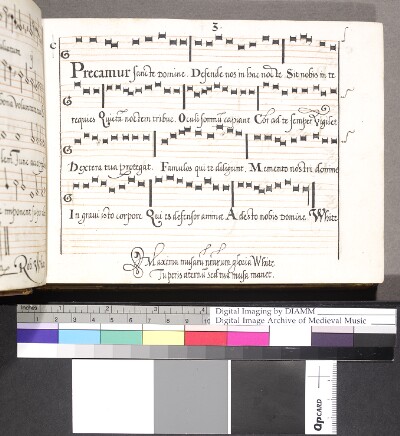 3
Precamur sancte Domine. Defende nos in hac nocte Sit nobis in te
requies Quietā noctem tribue. Oculi somnū capiant Cor ad te semper vigilet
Dextera tua protegat. Famulos qui te diligunt. Memento nostri domine
In gravi isto corpore Qui es defensor animæ Adesto nobis Domine. White
Maxima musarū nrarum gloria White
Tu peris æternū sed tua musa manet.
inches
Digital Imaging by DIAMM
Digital Image Archive of Medieval Music
QPCARD